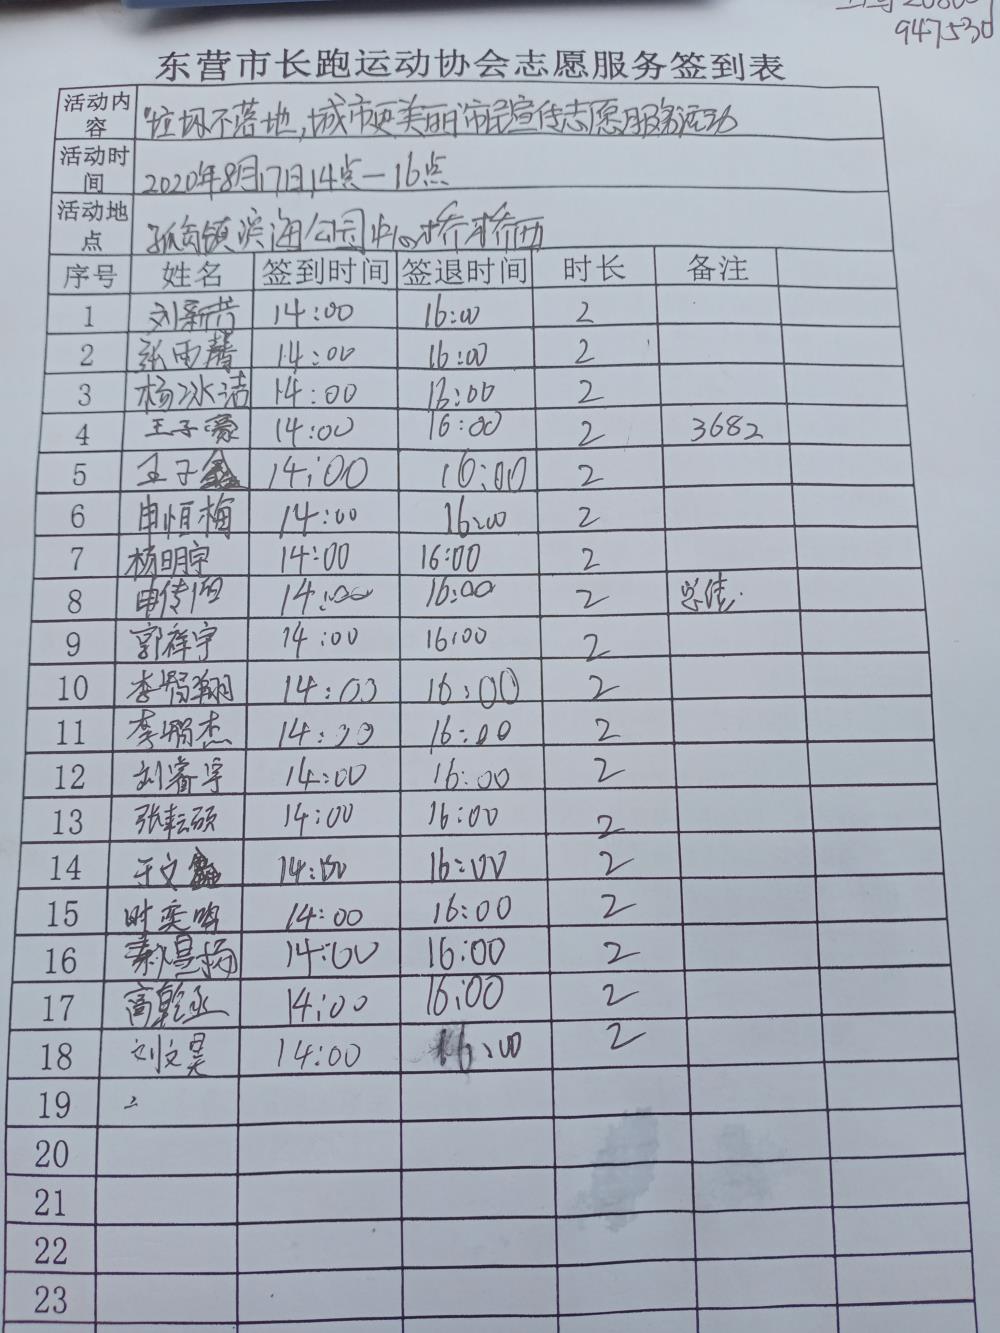 947530
东营市长跑运动协会志愿服务签到表
活动内容 "垃圾不落地,城市更美丽"市民宣传志愿服务活动
活动时间 2020年8月17日14点—16点
活动地点 孤岛镇滨海公园中心桥桥西
序号 姓名 签到时间 签退时间 时长 备注
1 14:00 16:00 2
2 张雨馨 14:00 16:00 2
3 杨冰洁 14:00 16:00 2
4 王子豪 14:00 16:00 2 3682
5 王子鑫 14:00 16:00 2
6 申恒梅 14:00 16:00 2
7 杨明宇 14:00 16:00 2
8 14:00 16:00 2
9 郭祥宇 14:00 16:00 2
10 14:00 16:00 2
11 李鹏杰 14:00 16:00 2
12 刘睿宇 14:00 16:00 2
13 张耘硕 14:00 16:00 2
14 于文鑫 14:00 16:00 2
15 时奕鸣 14:00 16:00 2
16 14:00 16:00 2
17 高乾丞 14:00 16:00 2
18 刘文昊 14:00 16:00 2
19
20
21
22
23